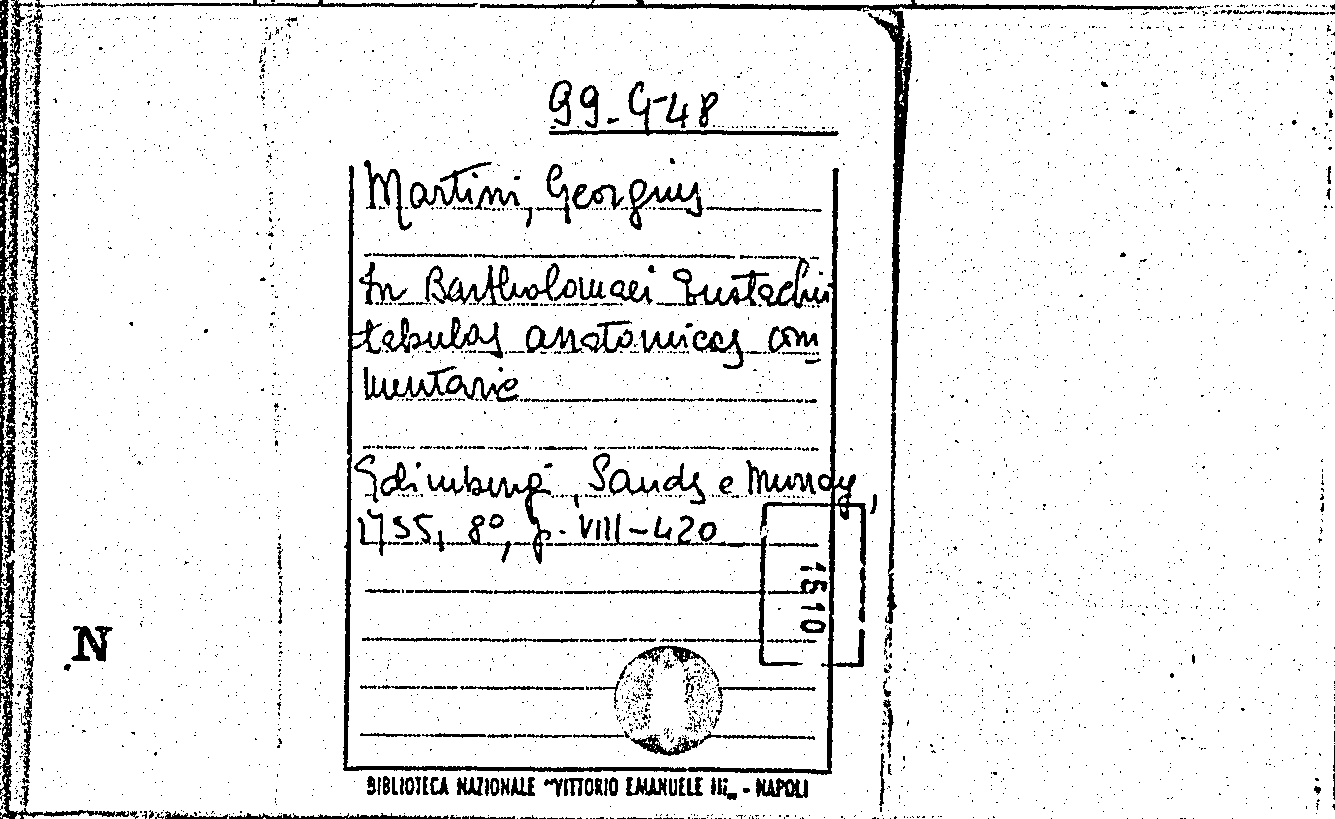 99-G-48
Martini, Georgius
In Bartholomaei Eustachii
tabulas anatomicas com
mentarie
Edimburgi, Sands e Murray,
1755, 8º, p. VIII-420
1510
N
BIBLIOTECA NAZIONALE "VITTORIO EMANUELE III" - NAPOLI